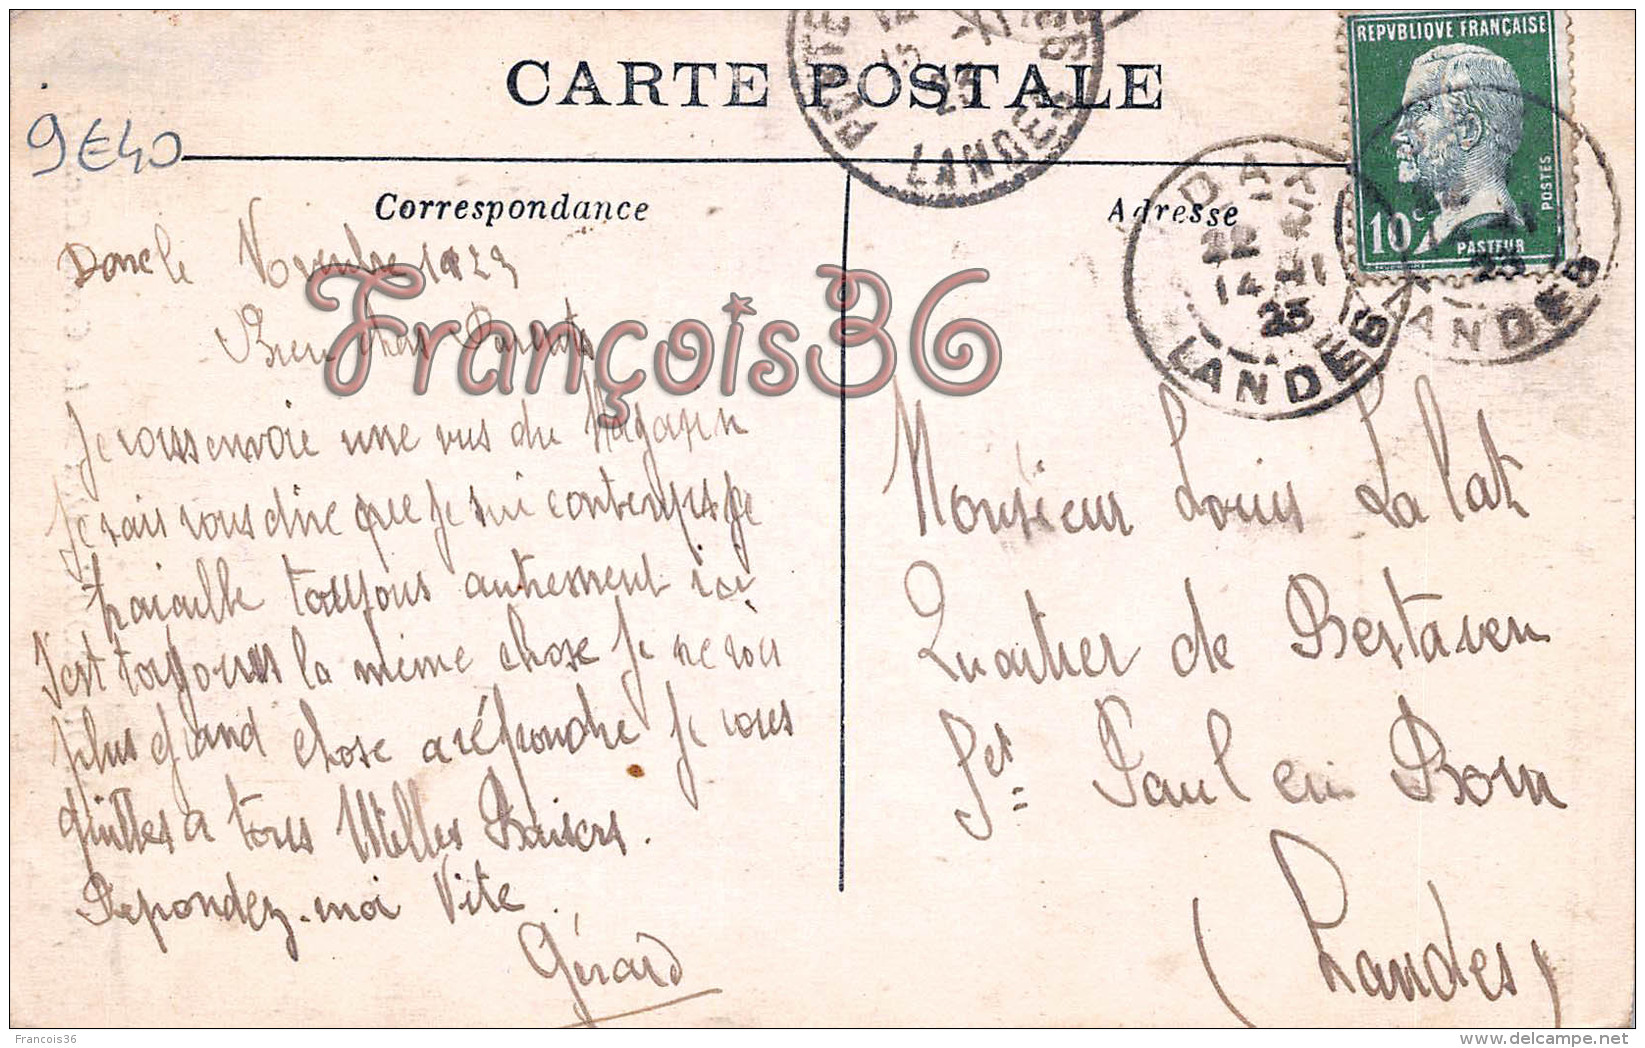 CARTE POSTALE
9E40
Correspondance
Adresse
REPVBLIQVE FRANÇAISE
10c
POSTES
PASTEUR
DAX
22
14-11
23
LANDES
LANDES
23
LANDES
François36
Novembre 1923
Bien chers Parents
Je vous envoie une vus du Magasin
Je vais vous dire que je sui contemps je
travaille toujours autrement ici
s'est toujours la même chose Je ne voi
plus grand chose a répondre Je vous
quittes a tous Milles Baisers.
Repondez-moi Vite.
Gérard
Monsieur Louis Lalat
Quartier de Bestaven
St Paul en Born
(Landes)
Francois36
www.delcampe.net